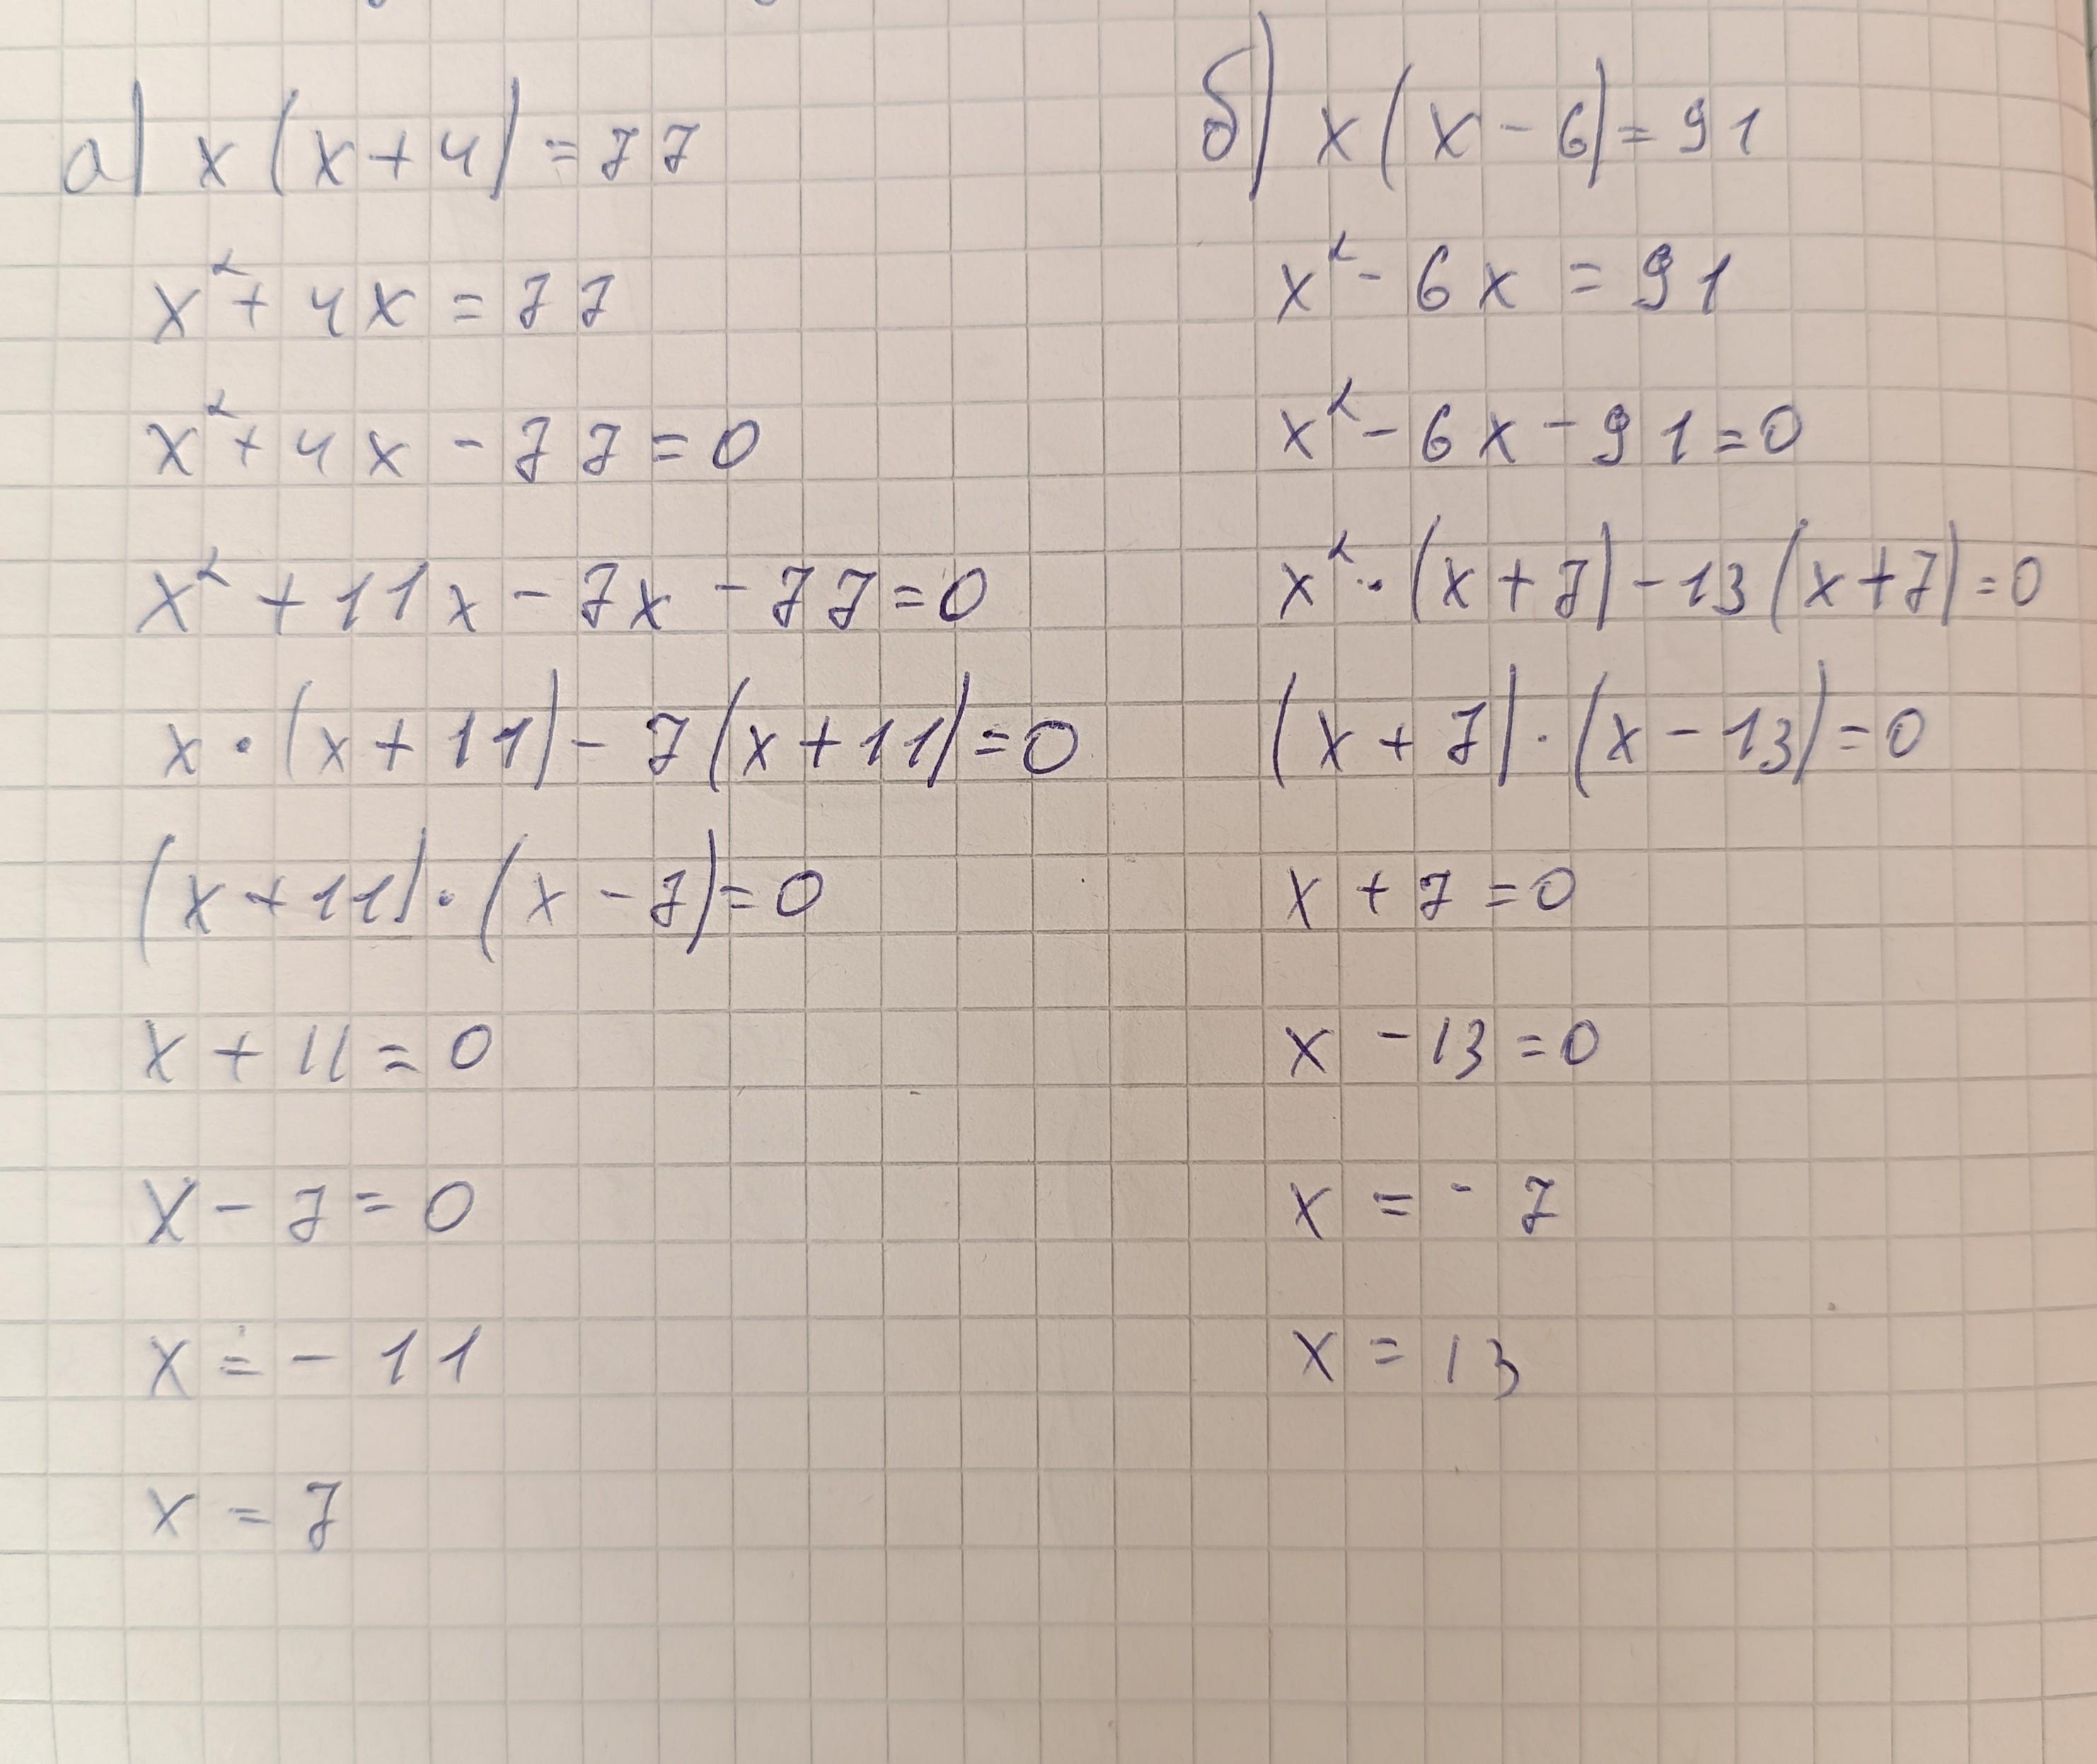 а) x(x+4)=77
x²+4x=77
x²+4x-77=0
x²+11x-7x-77=0
x·(x+11)-7(x+11)=0
(x+11)·(x-7)=0
x+11=0
x-7=0
x=-11
x=7
б) x(x-6)=91
x²-6x=91
x²-6x-91=0
x²·(x+7)-13(x+7)=0
(x+7)·(x-13)=0
x+7=0
x-13=0
x=-7
x=13